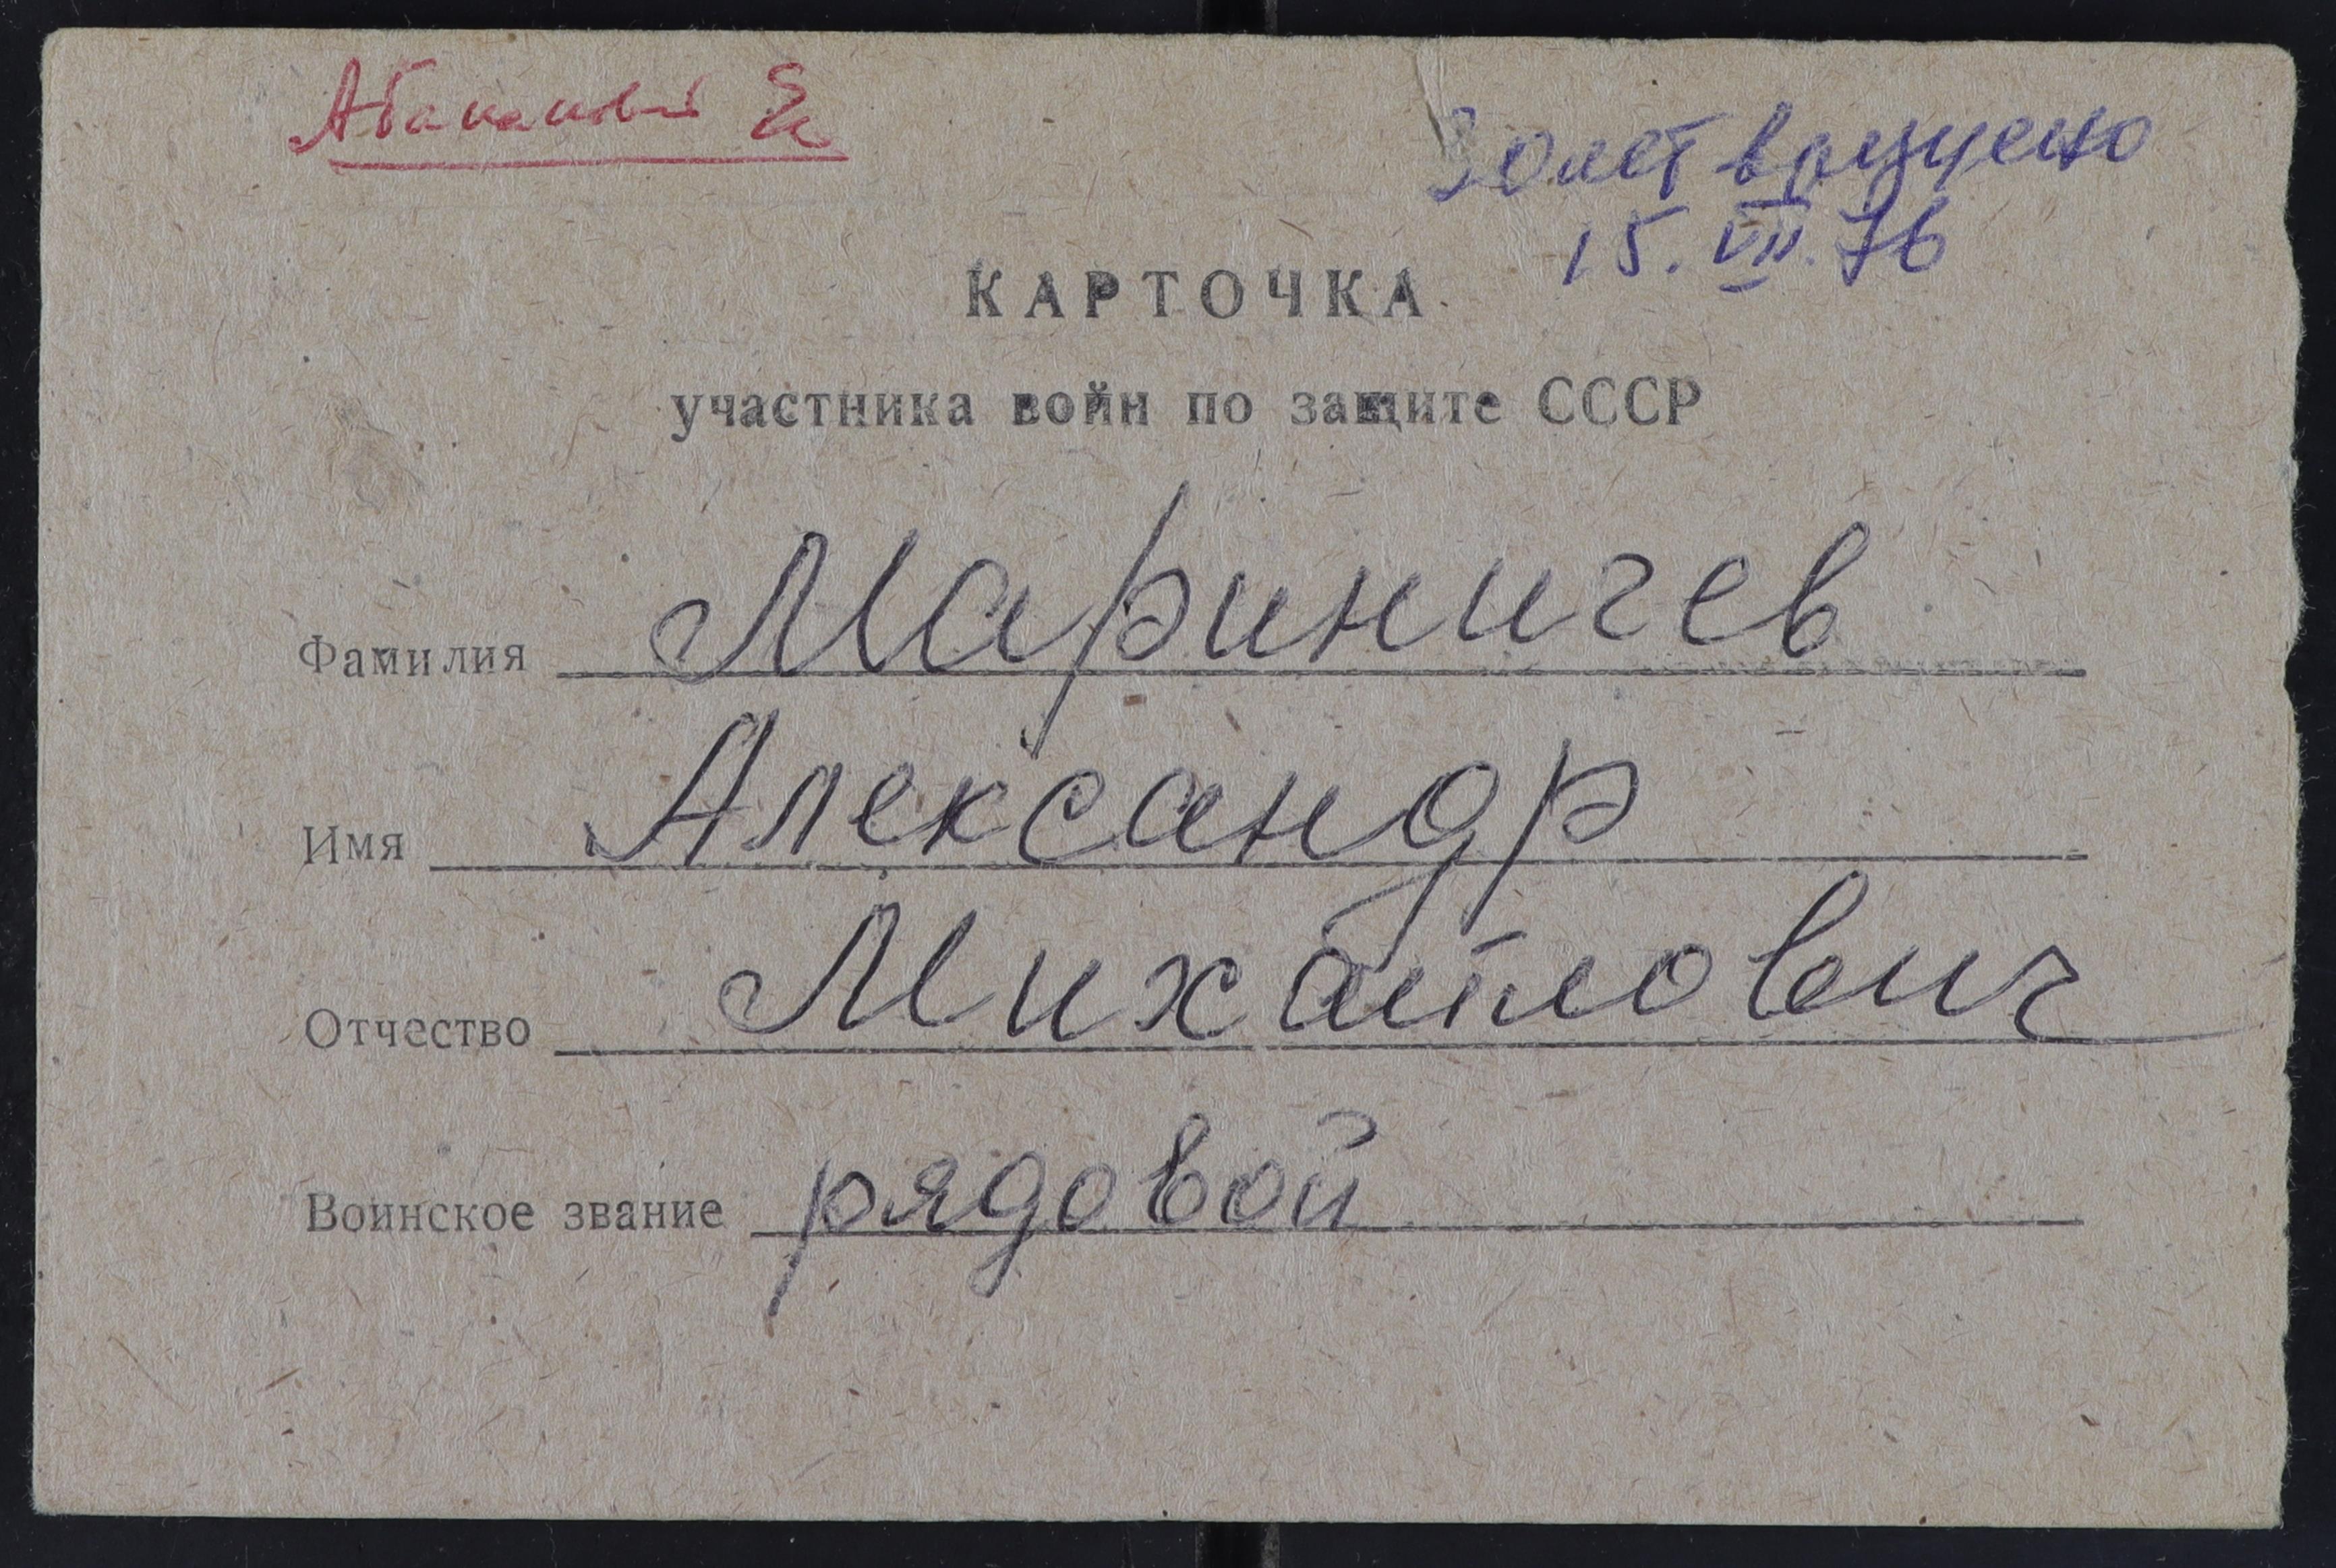 30 лет вручено
15.VII.76
КАРТОЧКА
участника войн по защите СССР
Фамилия Мариничев
Имя Александр
Отчество Михайлович
Воинское звание рядовой